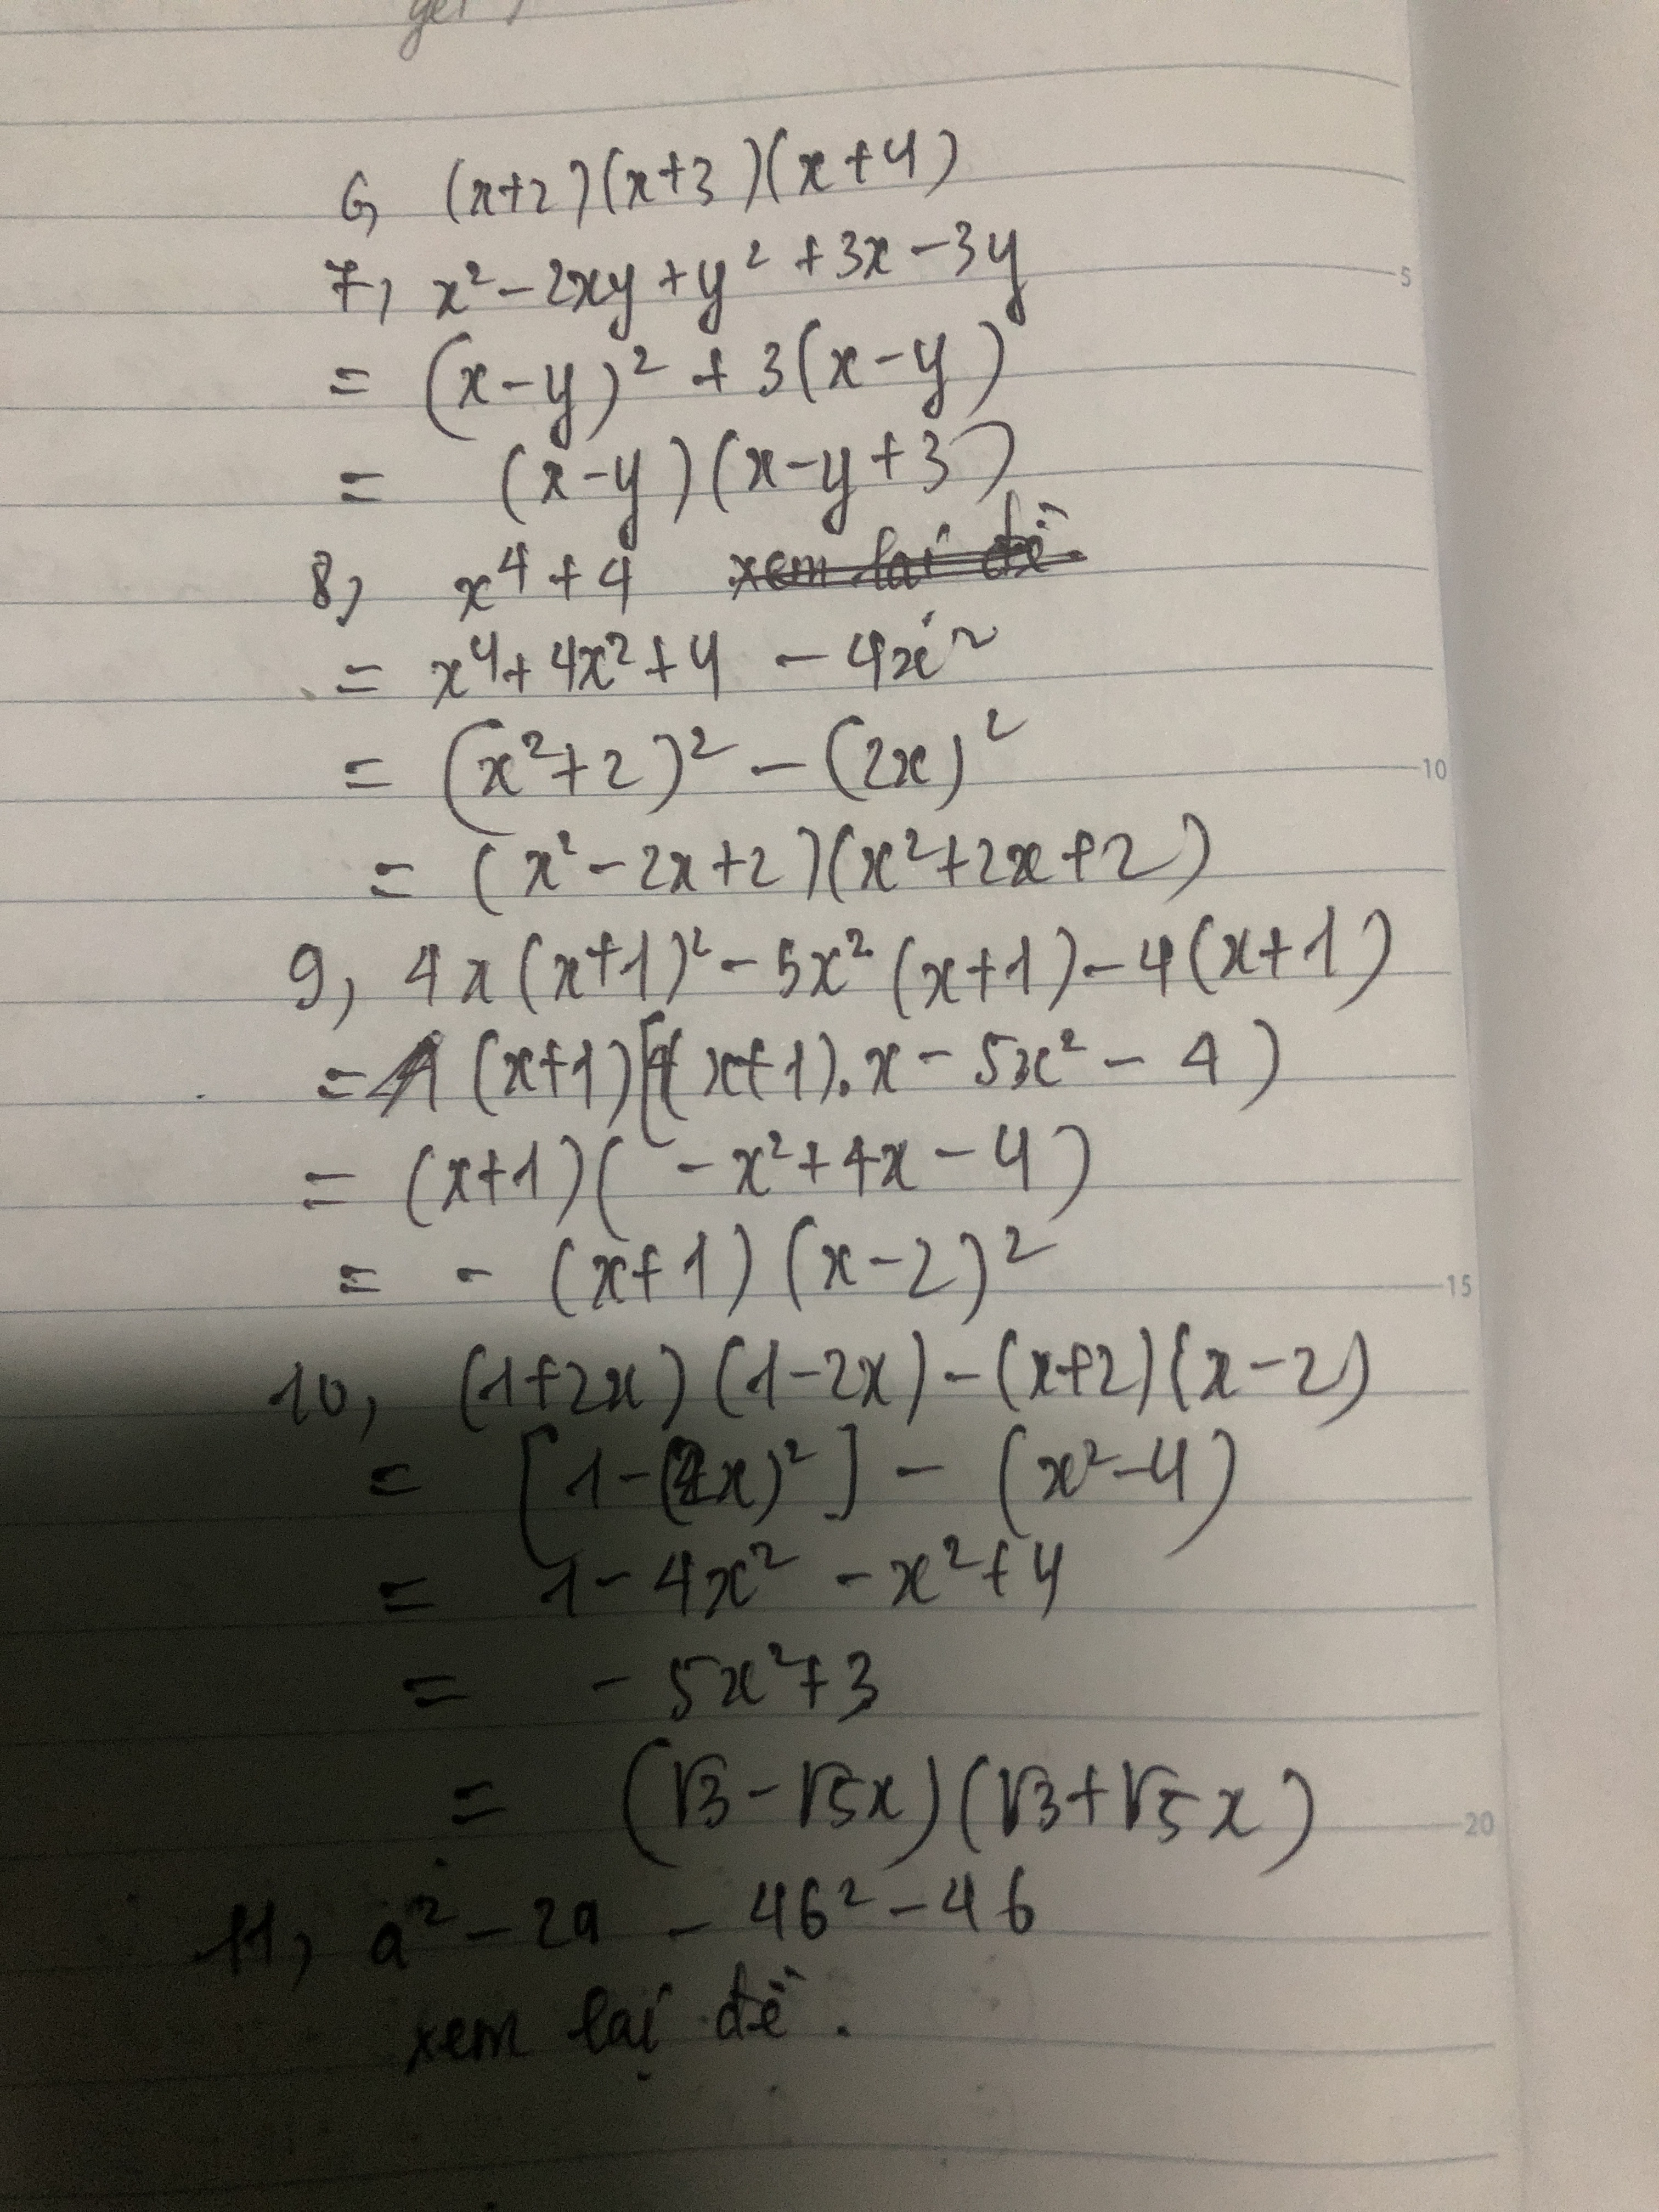 6, (x+2)(x+3)(x+4)
7, x² - 2xy + y² + 3x - 3y
= (x-y)² + 3(x-y)
= (x-y)(x-y+3)
8, x⁴+4 xem lại đề.
= x⁴+4x²+4 - 4x²
= (x²+2)² - (2x)²
= (x²-2x+2)(x²+2x+2)
9, 4x(x+1)² - 5x²(x+1) - 4(x+1)
= (x+1)[4(x+1).x - 5x² - 4)
= (x+1)(-x²+4x-4)
= - (x+1)(x-2)²
10, (1+2x)(1-2x) - (x+2)(x-2)
= [1-(2x)²] - (x²-4)
= 1 - 4x² - x² + 4
= - 5x²+3
= (√3 - √5x)(√3+√5x)
11, a² - 2a - 4b² - 4b
xem lại đề.